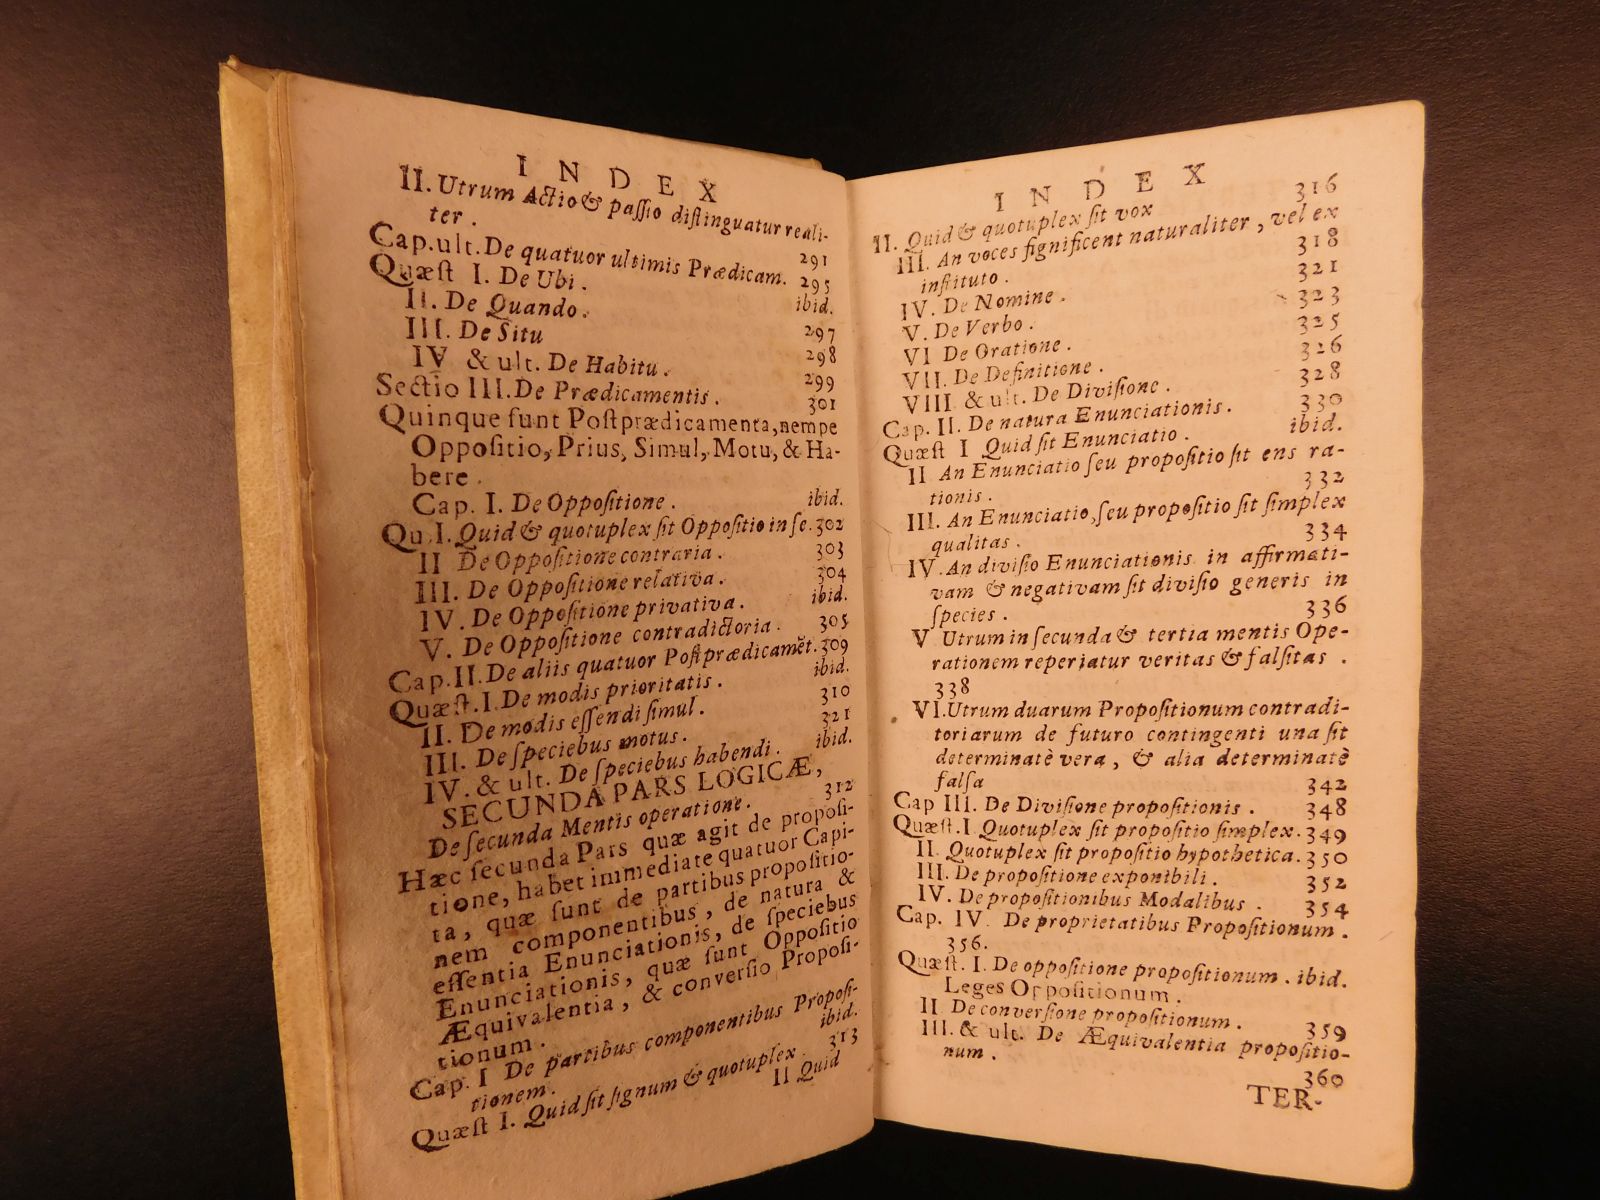 INDEX
II. Utrum Actio & paſſio diſtinguatur reali-
ter. 291
Cap.ult. De quatuor ultimis Prædicam. 295
Quæſt I. De Ubi. ibid.
II. De Quando. 297
III. De Situ 298
IV & ult. De Habitu. 299
Sectio III. De Prædicamentis. 301
Quinque ſunt Poſtprædicamenta, nempe
Oppoſitio, Prius, Simul, Motu, & Ha-
bere.
Cap. I. De Oppoſitione. ibid.
Qu. I. Quid & quotuplex ſit Oppoſitio in ſe. 302
II De Oppoſitione contraria. 303
III. De Oppoſitione relativa. 304
IV. De Oppoſitione privativa. ibid.
V. De Oppoſitione contradictoria. 305
Cap. II. De aliis quatuor Poſtprædicamēt. 309
Quæſt. I. De modis prioritatis. ibid.
II. De modis eſſendi ſimul. 310
III. De ſpeciebus motus. 321
IV. & ult. De ſpeciebus habendi. ibid.
SECUNDA PARS LOGICÆ,
De ſecunda Mentis operatione. 312
Hæc ſecunda Pars quæ agit de propoſi-
tione, habet immediate quatuor Capi-
ta, quæ ſunt de partibus propoſitio-
nem componentibus, de natura &
eſſentia Enunciationis, de ſpeciebus
Enunciationis, quæ ſunt Oppoſitio
Æquivalentia, & converſio Propoſi-
tionum.
Cap. I De partibus componentibus Propoſi-
tionem. ibid.
Quæſt I. Quid ſit ſignum & quotuplex. 313
II Quid
INDEX
II. Quid & quotuplex ſit vox 316
III. An voces ſignificent naturaliter, vel ex
inſtituto. 318
IV. De Nomine. 321
V. De Verbo. 323
VI De Oratione. 325
VII. De Definitione. 326
VIII & ult. De Diviſione. 328
Cap. II. De natura Enunciationis. 330
Quæſt I Quid ſit Enunciatio. ibid.
II An Enunciatio ſeu propoſitio ſit ens ra-
tionis. 332
III. An Enunciatio, ſeu propoſitio ſit ſimplex
qualitas. 334
IV. An diviſio Enunciationis in affirmati-
vam & negativam ſit diviſio generis in
ſpecies. 336
V Utrum in ſecunda & tertia mentis Ope-
rationem reperiatur veritas & falſitas.
338
VI. Utrum duarum Propoſitionum contradi-
toriarum de futuro contingenti una ſit
determinatè vera, & alia determinatè
falſa 342
Cap III. De Diviſione propoſitionis. 348
Quæſt. I Quotuplex ſit propoſitio ſimplex. 349
II. Quotuplex ſit propoſitio hypothetica. 350
III. De propoſitione exponibili. 352
IV. De propoſitionibus Modalibus. 354
Cap. IV. De proprietatibus Propoſitionum.
356.
Quæſt. I. De oppoſitione propoſitionum. ibid.
Leges Oppoſitionum.
II De converſione propoſitionum. 359
III. & ult. De Æquivalentia propoſitio-
num. 360
TER-